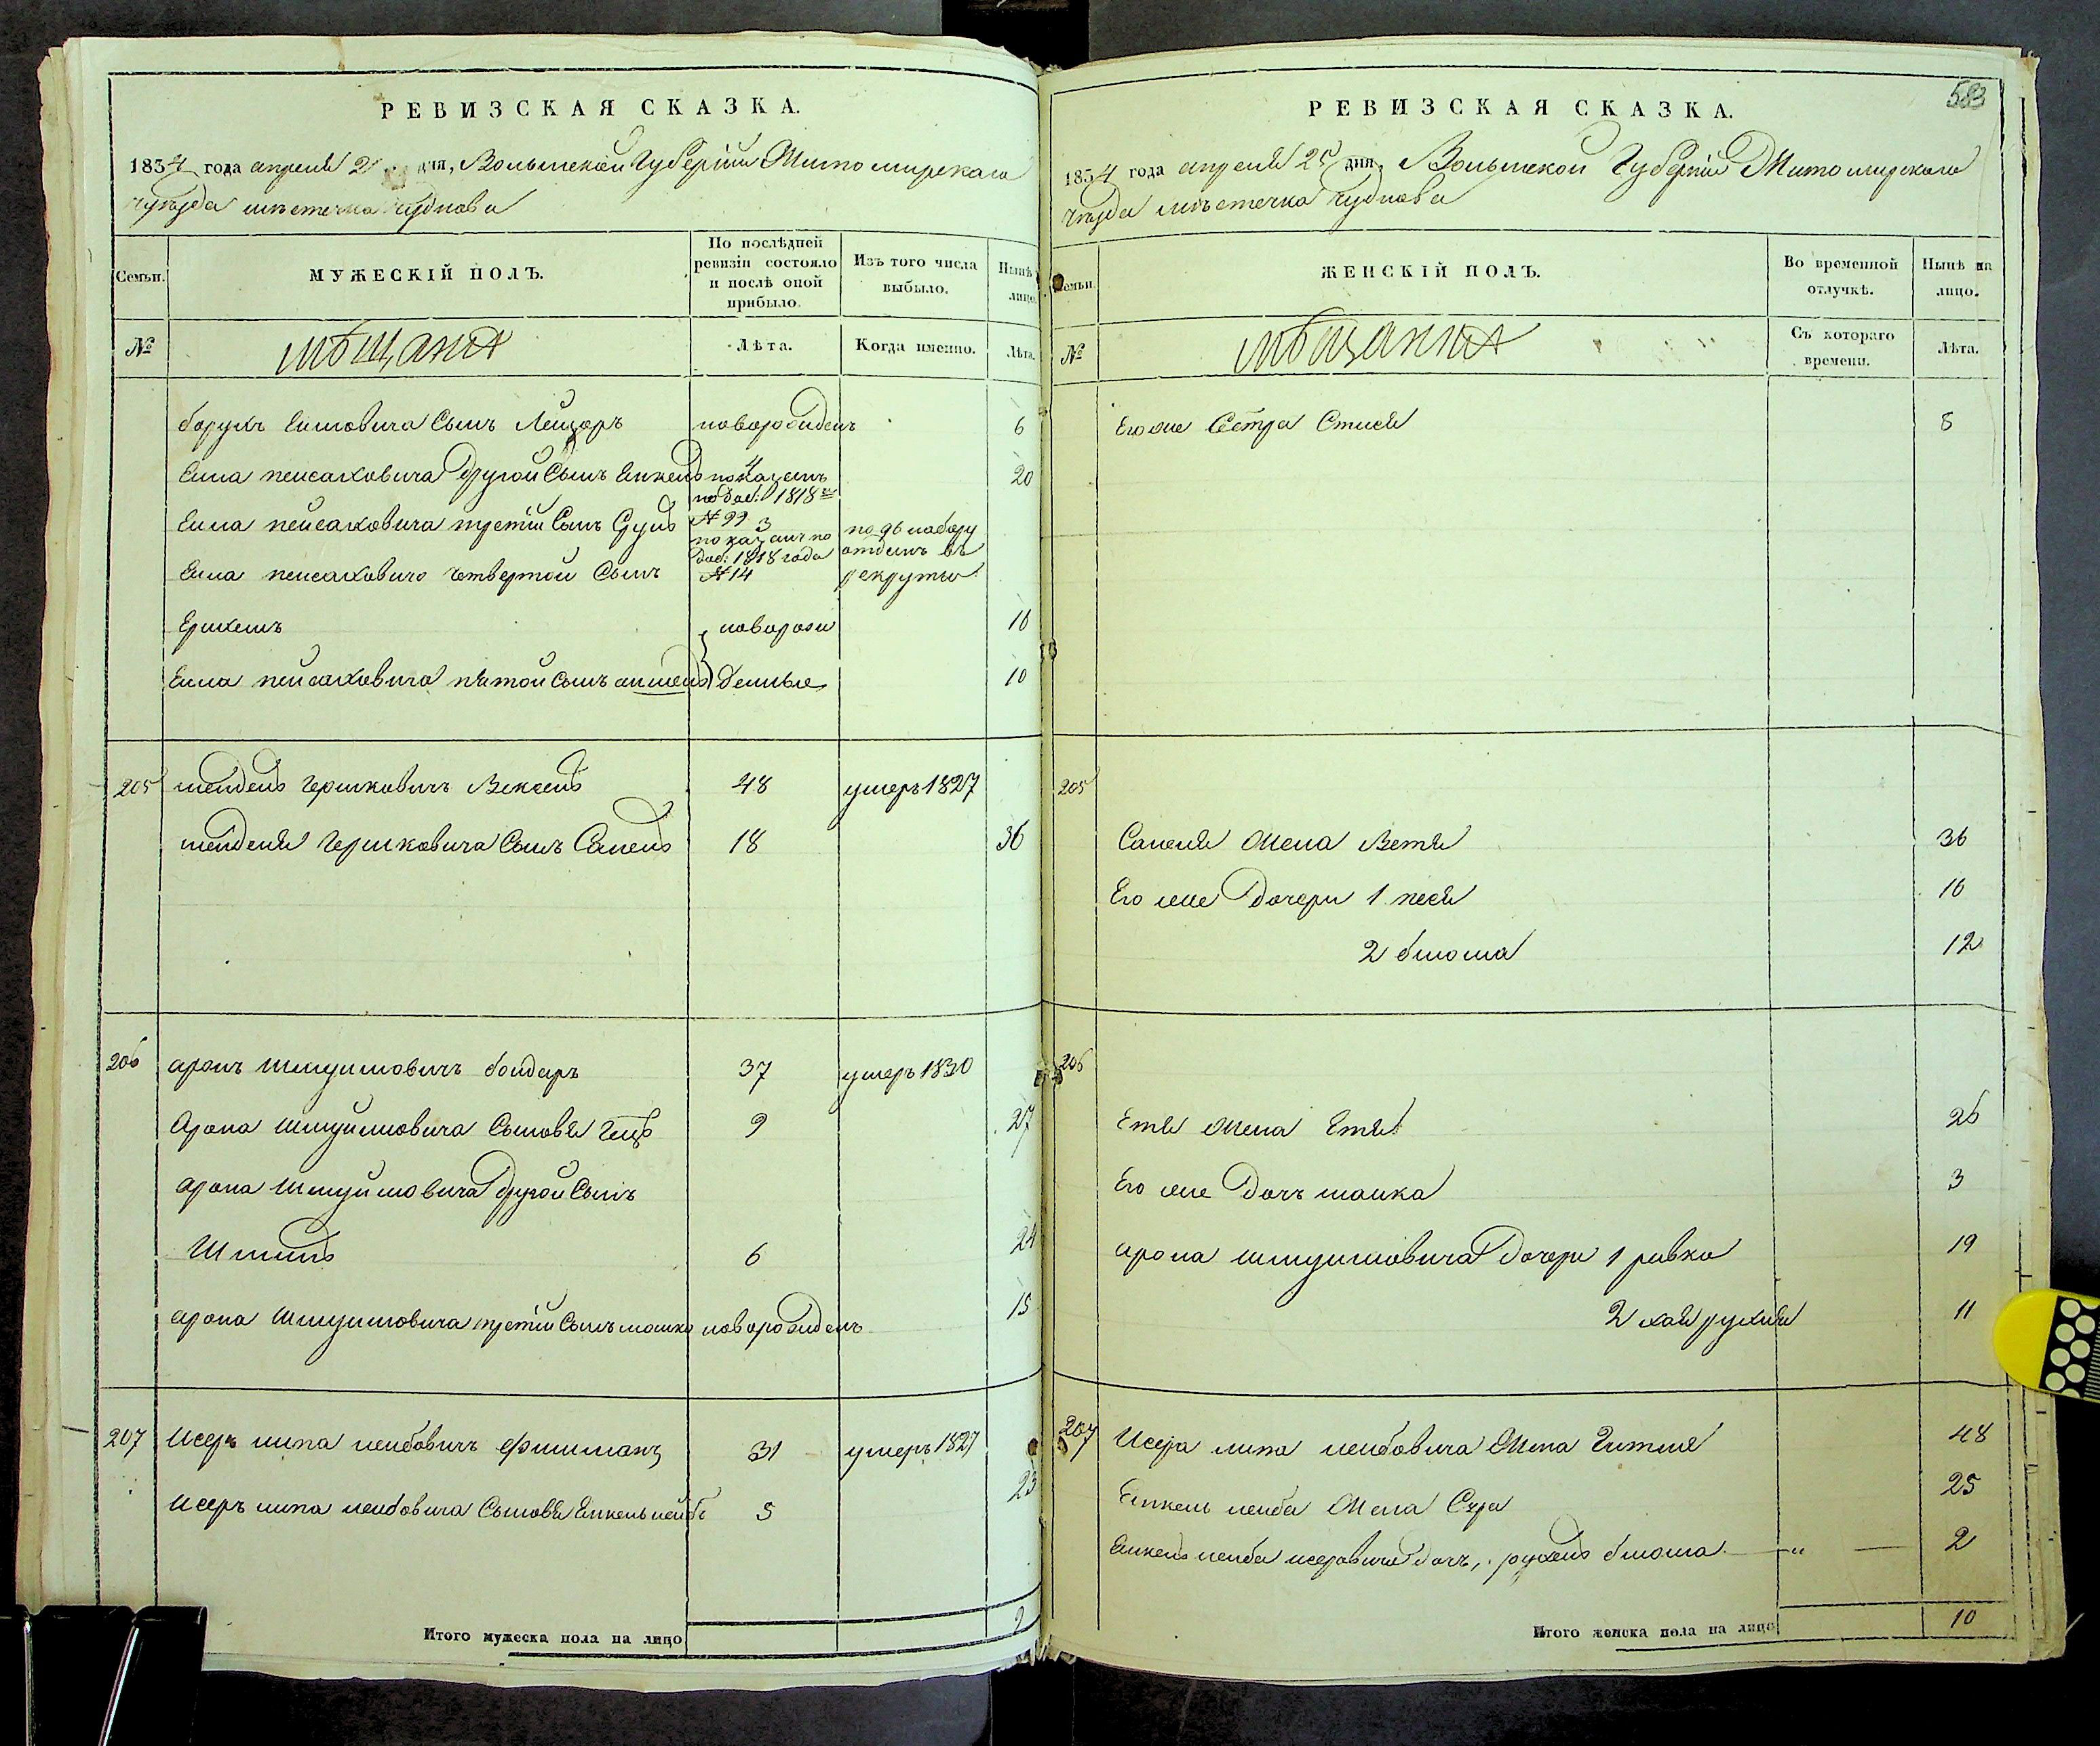 РЕВИЗСКАЯ СКАЗКА.
1834 года апреля 2 дня, Волынской Губерніи Житомирскаго
уѣзда мѣстечка Чуднова
Семьи.
МУЖЕСКІЙ ПОЛЪ.
По послѣдней ревизіи состояло и послѣ оной прибыло.
Изъ того числа выбыло.
Нынѣ лицо.
№
мѣщане
Лѣта.
Когда именно.
Лѣта.
борухъ Сынъ Лейзоръ новорожденъ 6
пейсаховича другой Сынъ 4 показанъ 20
по доб: 1818 № 99
пейсаховича третій Сынъ Сруль 3 показанъ по доб: 1818 года № 14 по набору отданъ въ рекруты
пейсаховича четвертой Сынъ
новорож 16
пейсаховича пятой Сынъ аншель денные 10
205 шендель Гершковичъ Вексель 48 умеръ 1827
шенделя Гершковича Сынъ Сапель 18 36
206 аронъ Шмуйловичъ бондаръ 37 умеръ 1830
Арона Шмуйловича Сыновья 9 27
арона Шмуйловича другой Сынъ
Шмиль 6 24
арона Шмуйловича третій Сынъ мошко новорожденъ 15
207 Исеръ липа лейбовичъ фишманъ 31 умеръ 1827
Исеръ липа лейбовича Сыновья Янкель лейбъ 5 23
Итого мужеска пола на лицо 9
583
РЕВИЗСКАЯ СКАЗКА.
1834 года апреля 25 дня, Волынской Губерніи Житомирскаго
уѣзда мѣстечка Чуднова
Семьи
ЖЕНСКІЙ ПОЛЪ.
Во временной отлучкѣ.
Нынѣ на лицо.
№
мѣщане
Съ котораго времени.
Лѣта.
Его же Сестра 8
205
Сапеля жена Бетя 36
Его же Дочери 1 песя 16
2 блюма 12
206
жена Етя 26
Его же Дочь 3
арона шмуйловича Дочери 1 ривка 19
2 хая рухля 11
207 Исера липа лейбовича жена Гитля 48
Янкель лейба жена Сура 25
Янкель лейба исеровича дочь, рухель блюма — „ — 2
Итого женска пола на лицо 10